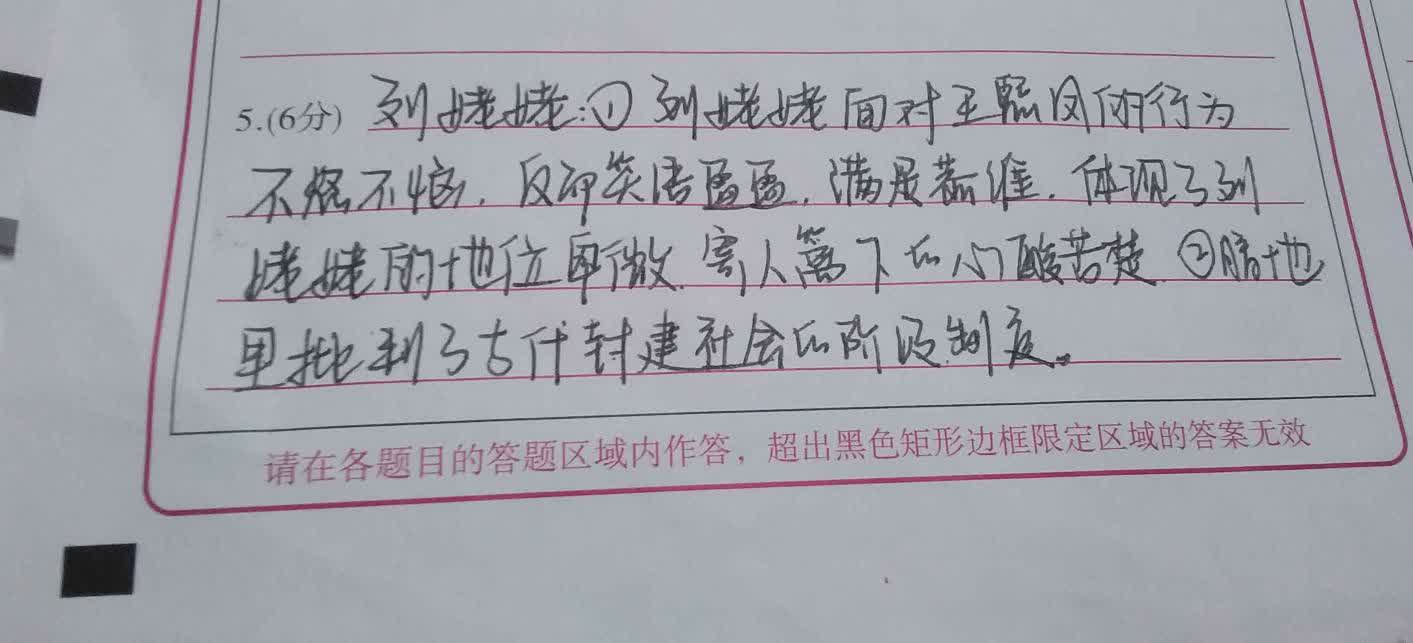 5.(6分) 刘姥姥:① 刘姥姥面对王熙凤的行为
不怒不恼,反而笑语盈盈,满是恭维,体现了刘
姥姥的地位卑微,寄人篱下的心酸苦楚 ②暗地
里批判了古代封建社会的阶级制度。
请在各题目的答题区域内作答，超出黑色矩形边框限定区域的答案无效